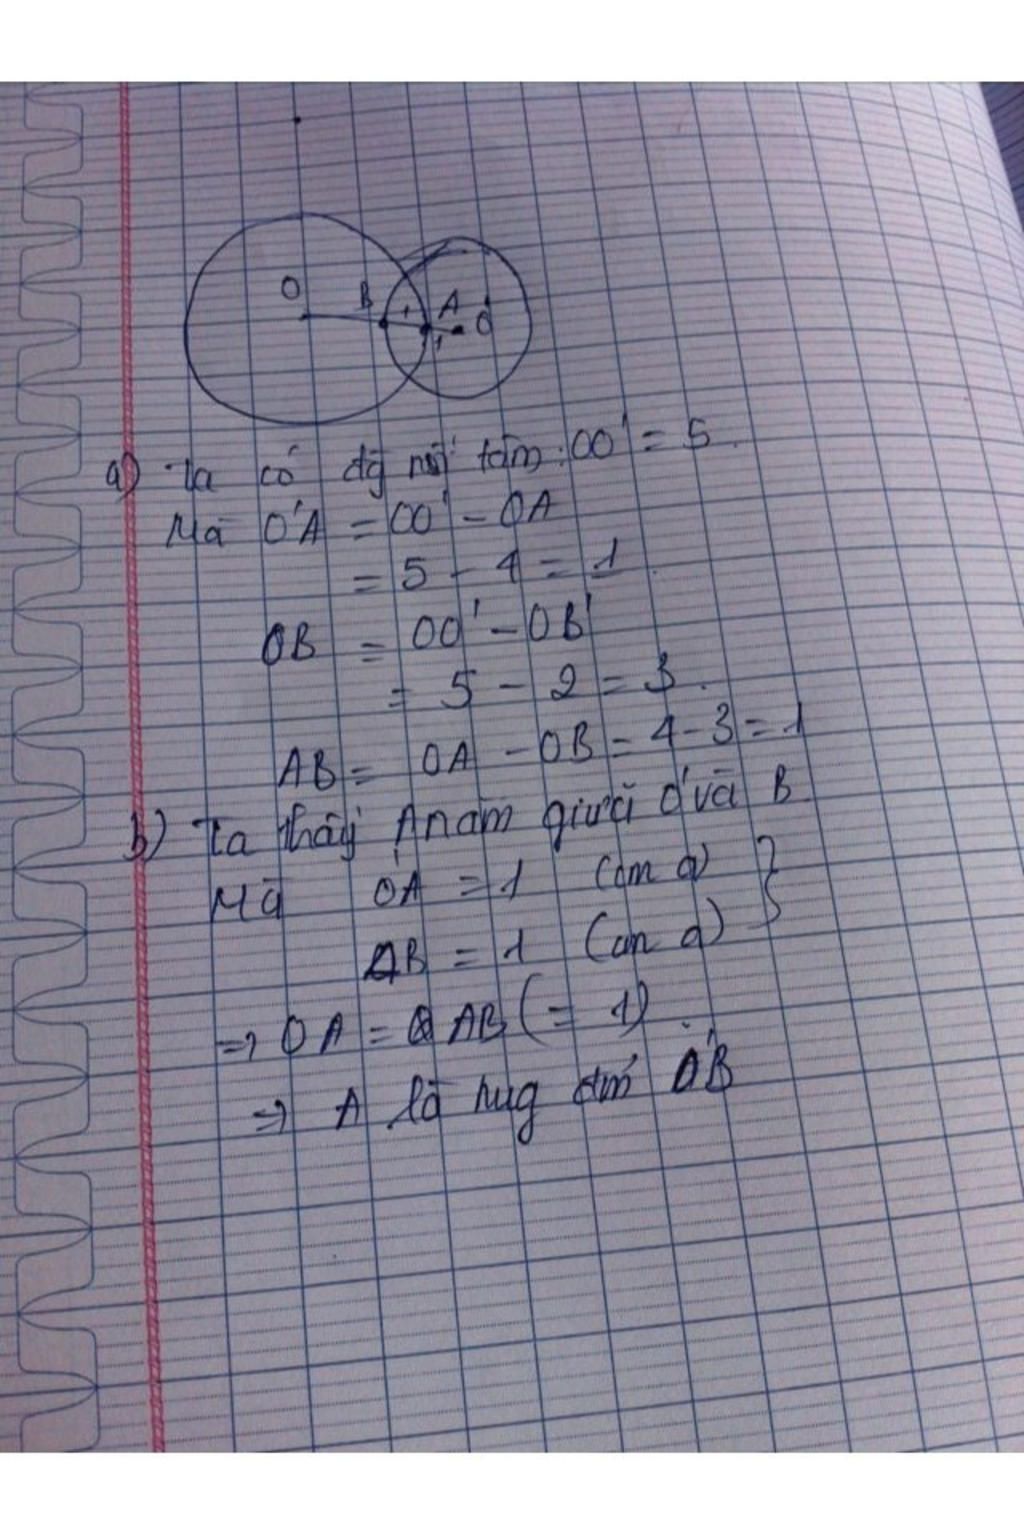 O B 1 A O'
1
a) Ta có đg nối tâm: OO' = 5.
Mà O'A = OO' - OA
= 5 - 4 = 1.
OB = OO' - OB'
= 5 - 2 = 3.
AB = OA - OB = 4 - 3 = 1
b) Ta thấy A nằm giữa O' và B
Mà O'A = 1 (cm a)
AB = 1 (cm a) }
=> OA = AB (= 1)
=> A là trug đm O'B